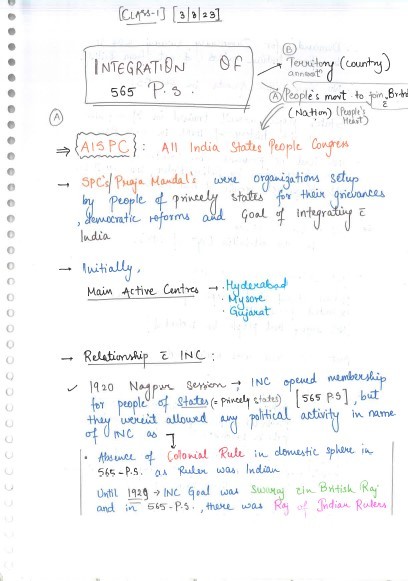 [CLASS-1] [3/3/23]
INTEGRATION OF
565 P.S.
(B)
Territory (Country)
annext
(A) People's movt to join Brit
(Nation) (People's
Heart)
(A)
⇒ [AISPC] : All India States People Congress
→ SPC's/Praja Mandal's were organizations setup
by people of princely states for their grievances
, democratic reforms and Goal of Integrating c̄
India
→ Initially,
Main Active Centres → · Hyderabad
· Mysore
· Gujarat
→ Relationship c̄ INC :
✓ 1920 Nagpur Session → INC opened membership
for people of States (= Princely States) [565 P.S], but
they weren't allowed any political activity in name
of INC as
· Absence of Colonial Rule in domestic sphere in
565-P.S. as Ruler was Indian
Until 1929 → INC Goal was Swaraj in British Raj
and in 565-P.S., there was Raj of Indian Rulers